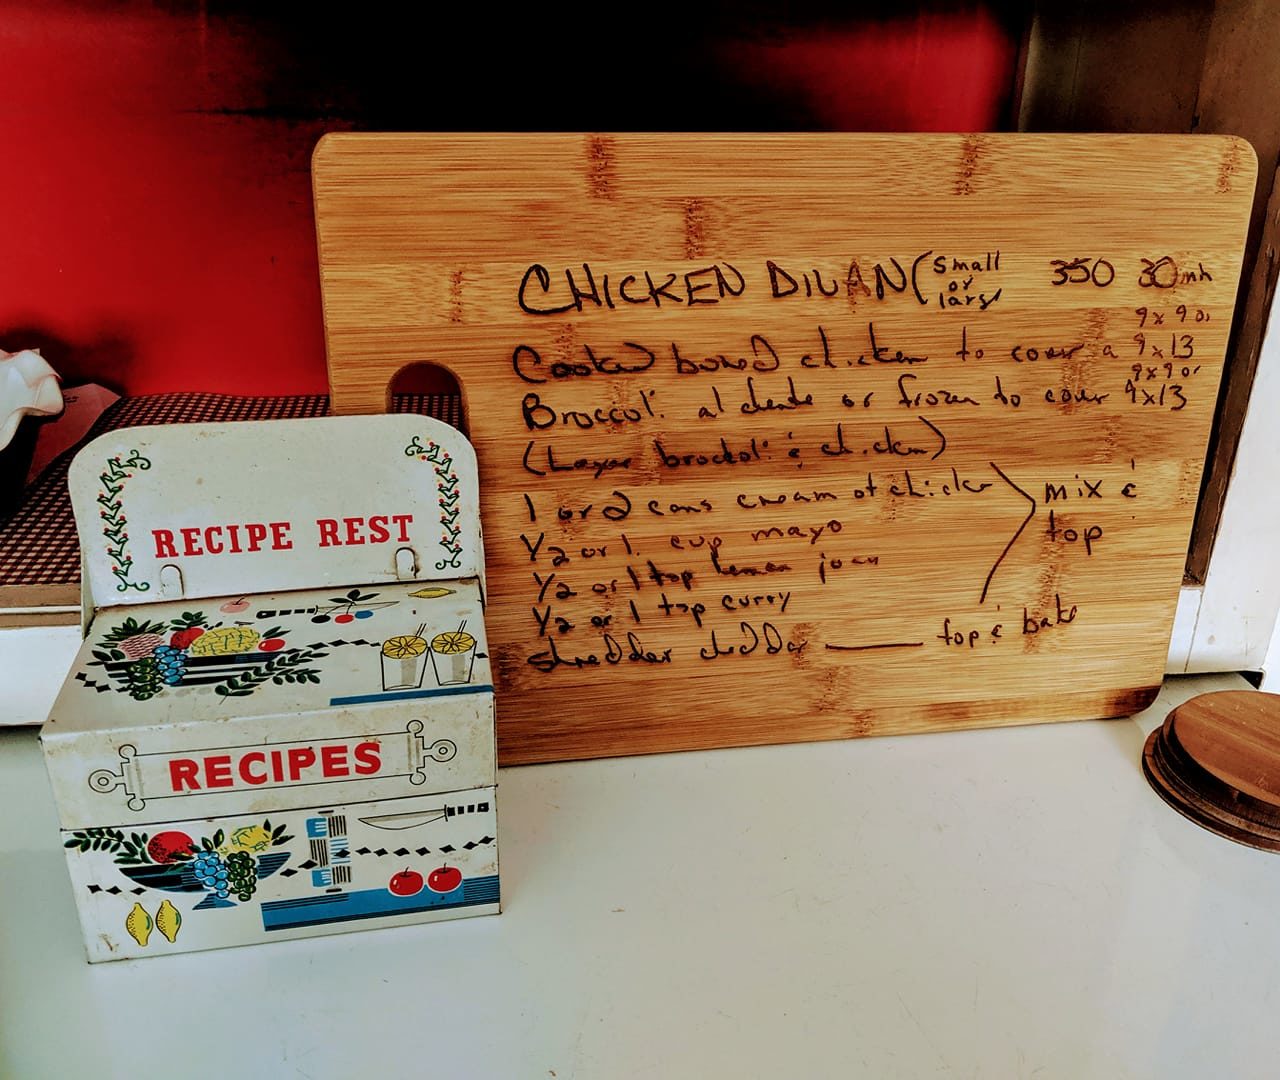 CHICKEN DIVAN (small or large) 350 30 min
9x9 or
Cooked boned chicken to cover a 9x13
9x9 or
Broccoli al dente or frozen to cover 9x13
(Layer broccoli & chicken)
1 or 2 cans cream of chicken
mix &
top
1/2 or 1 cup mayo
1/2 or 1 tsp lemon juice
1/2 or 1 tsp curry
shredded cheddar — top & bake
RECIPE REST
RECIPES